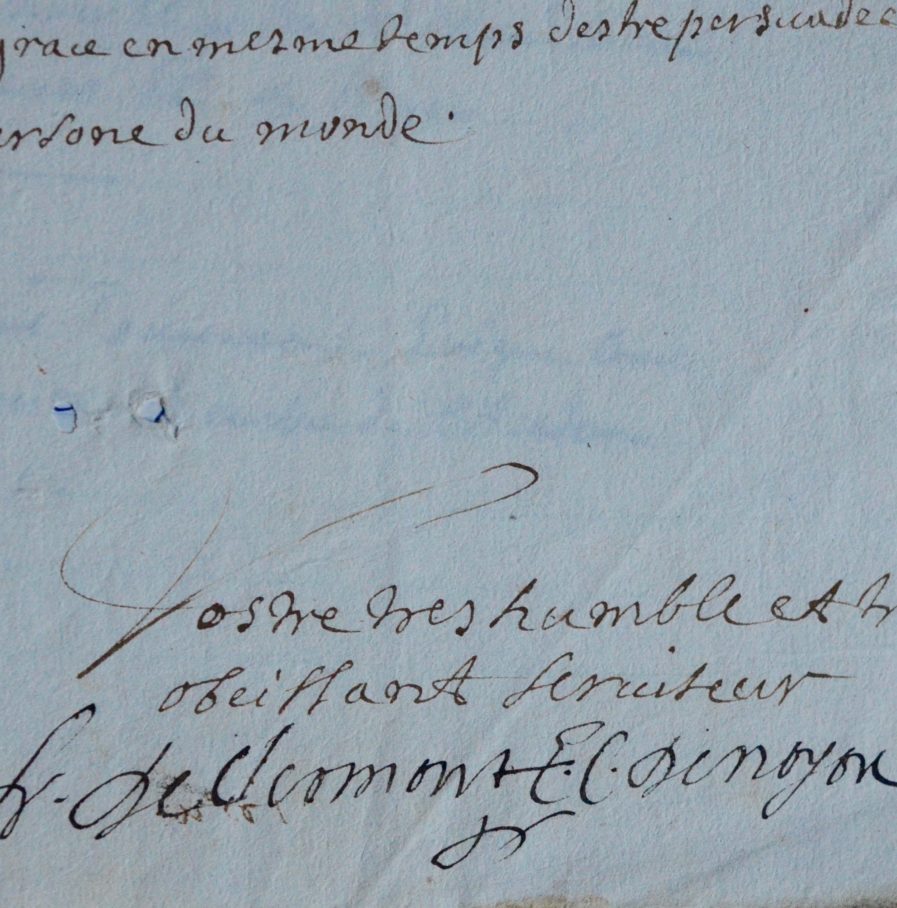 grace en mesme temps destre persuadee
ersone du monde.
Vostre tres humble et tr
obeissant seruiteur
fr. De Clermont E. C. De noyon